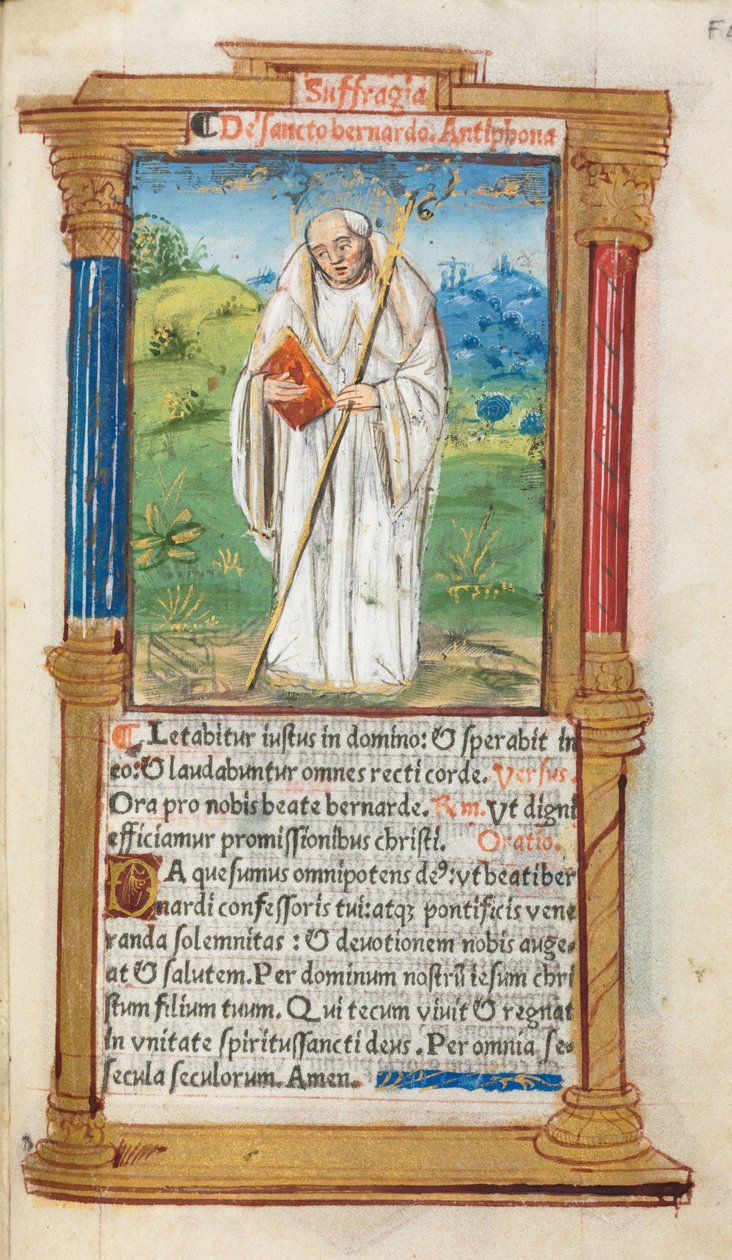 Suffragia
⁋ De sancto bernardo. Antiphona
⁋ Letabitur iustus in domino: & sperabit in
eo: & laudabuntur omnes recti corde. Versus.
Ora pro nobis beate bernarde. Rm. Vt digni
efficiamur promissionibus christi. Oratio.
DA quesumus omnipotens deꝰ: vt beati ber
nardi confessoris tui: atqꝫ pontificis vene
randa solemnitas: & deuotionem nobis auge-
at & salutem. Per dominum nostrū iesum chri
stum filium tuum. Qui tecum viuit & regnat
in vnitate spiritussancti deus. Per omnia se-
secula seculorum. Amen.